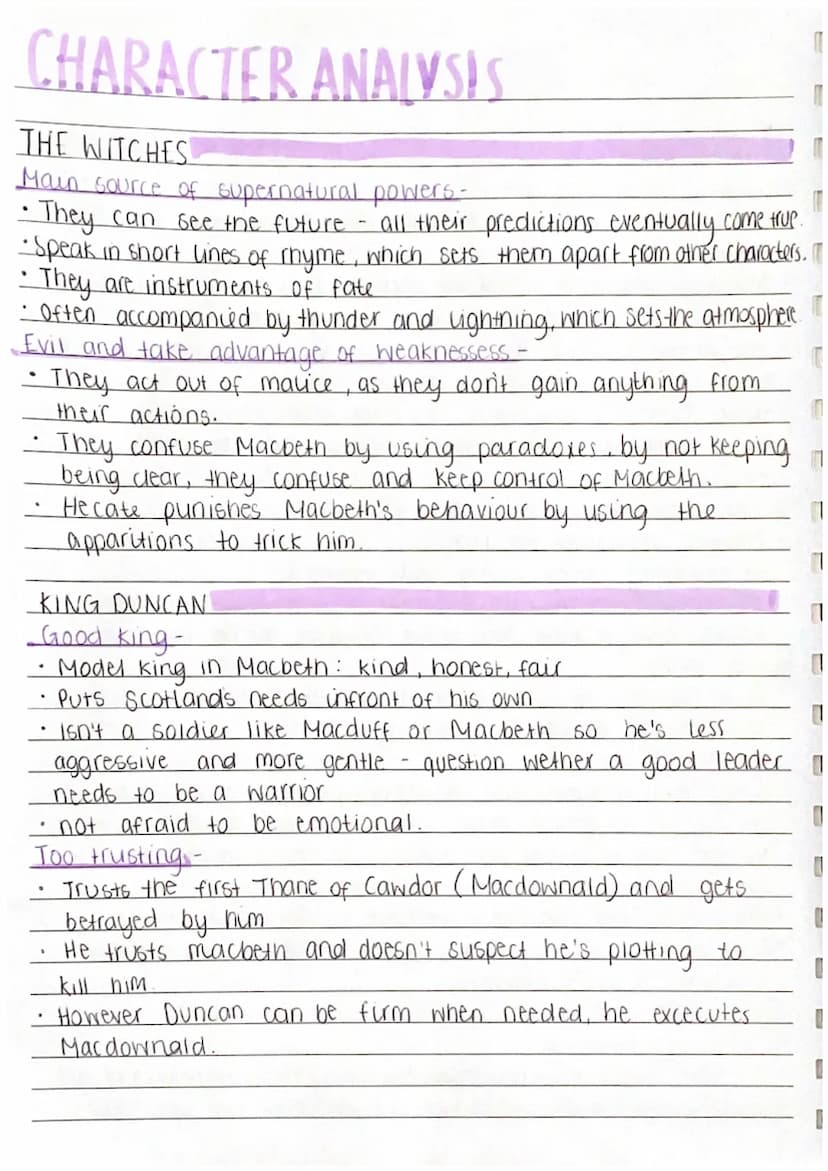 CHARACTER ANALYSIS
THE WITCHES
Main source of supernatural powers-
• They can see the future - all their predictions eventually come true.
• Speak in short lines of rhyme, which sets them apart from other characters.
• They are instruments of fate
• Often accompanied by thunder and lightning, which sets the atmosphere
Evil and take advantage of weaknessess -
• They act out of malice, as they don't gain anything from
their actions.
• They confuse Macbeth by using paradoxes, by not keeping
being clear, they confuse and keep control of Macbeth.
• Hecate punishes Macbeth's behaviour by using the
apparitions to trick him.
KING DUNCAN
Good king -
• Model king in Macbeth: kind, honest, fair
• Puts Scotlands needs infront of his own
• Isn't a soldier like Macduff or Macbeth so he's less
aggressive and more gentle - question wether a good leader
needs to be a warrior
• not afraid to be emotional.
Too trusting -
• Trusts the first Thane of Cawdor (Macdownald) and gets
betrayed by him
• He trusts macbeth and doesn't suspect he's plotting to
kill him.
• However Duncan can be firm when needed, he excecutes
Macdownald.